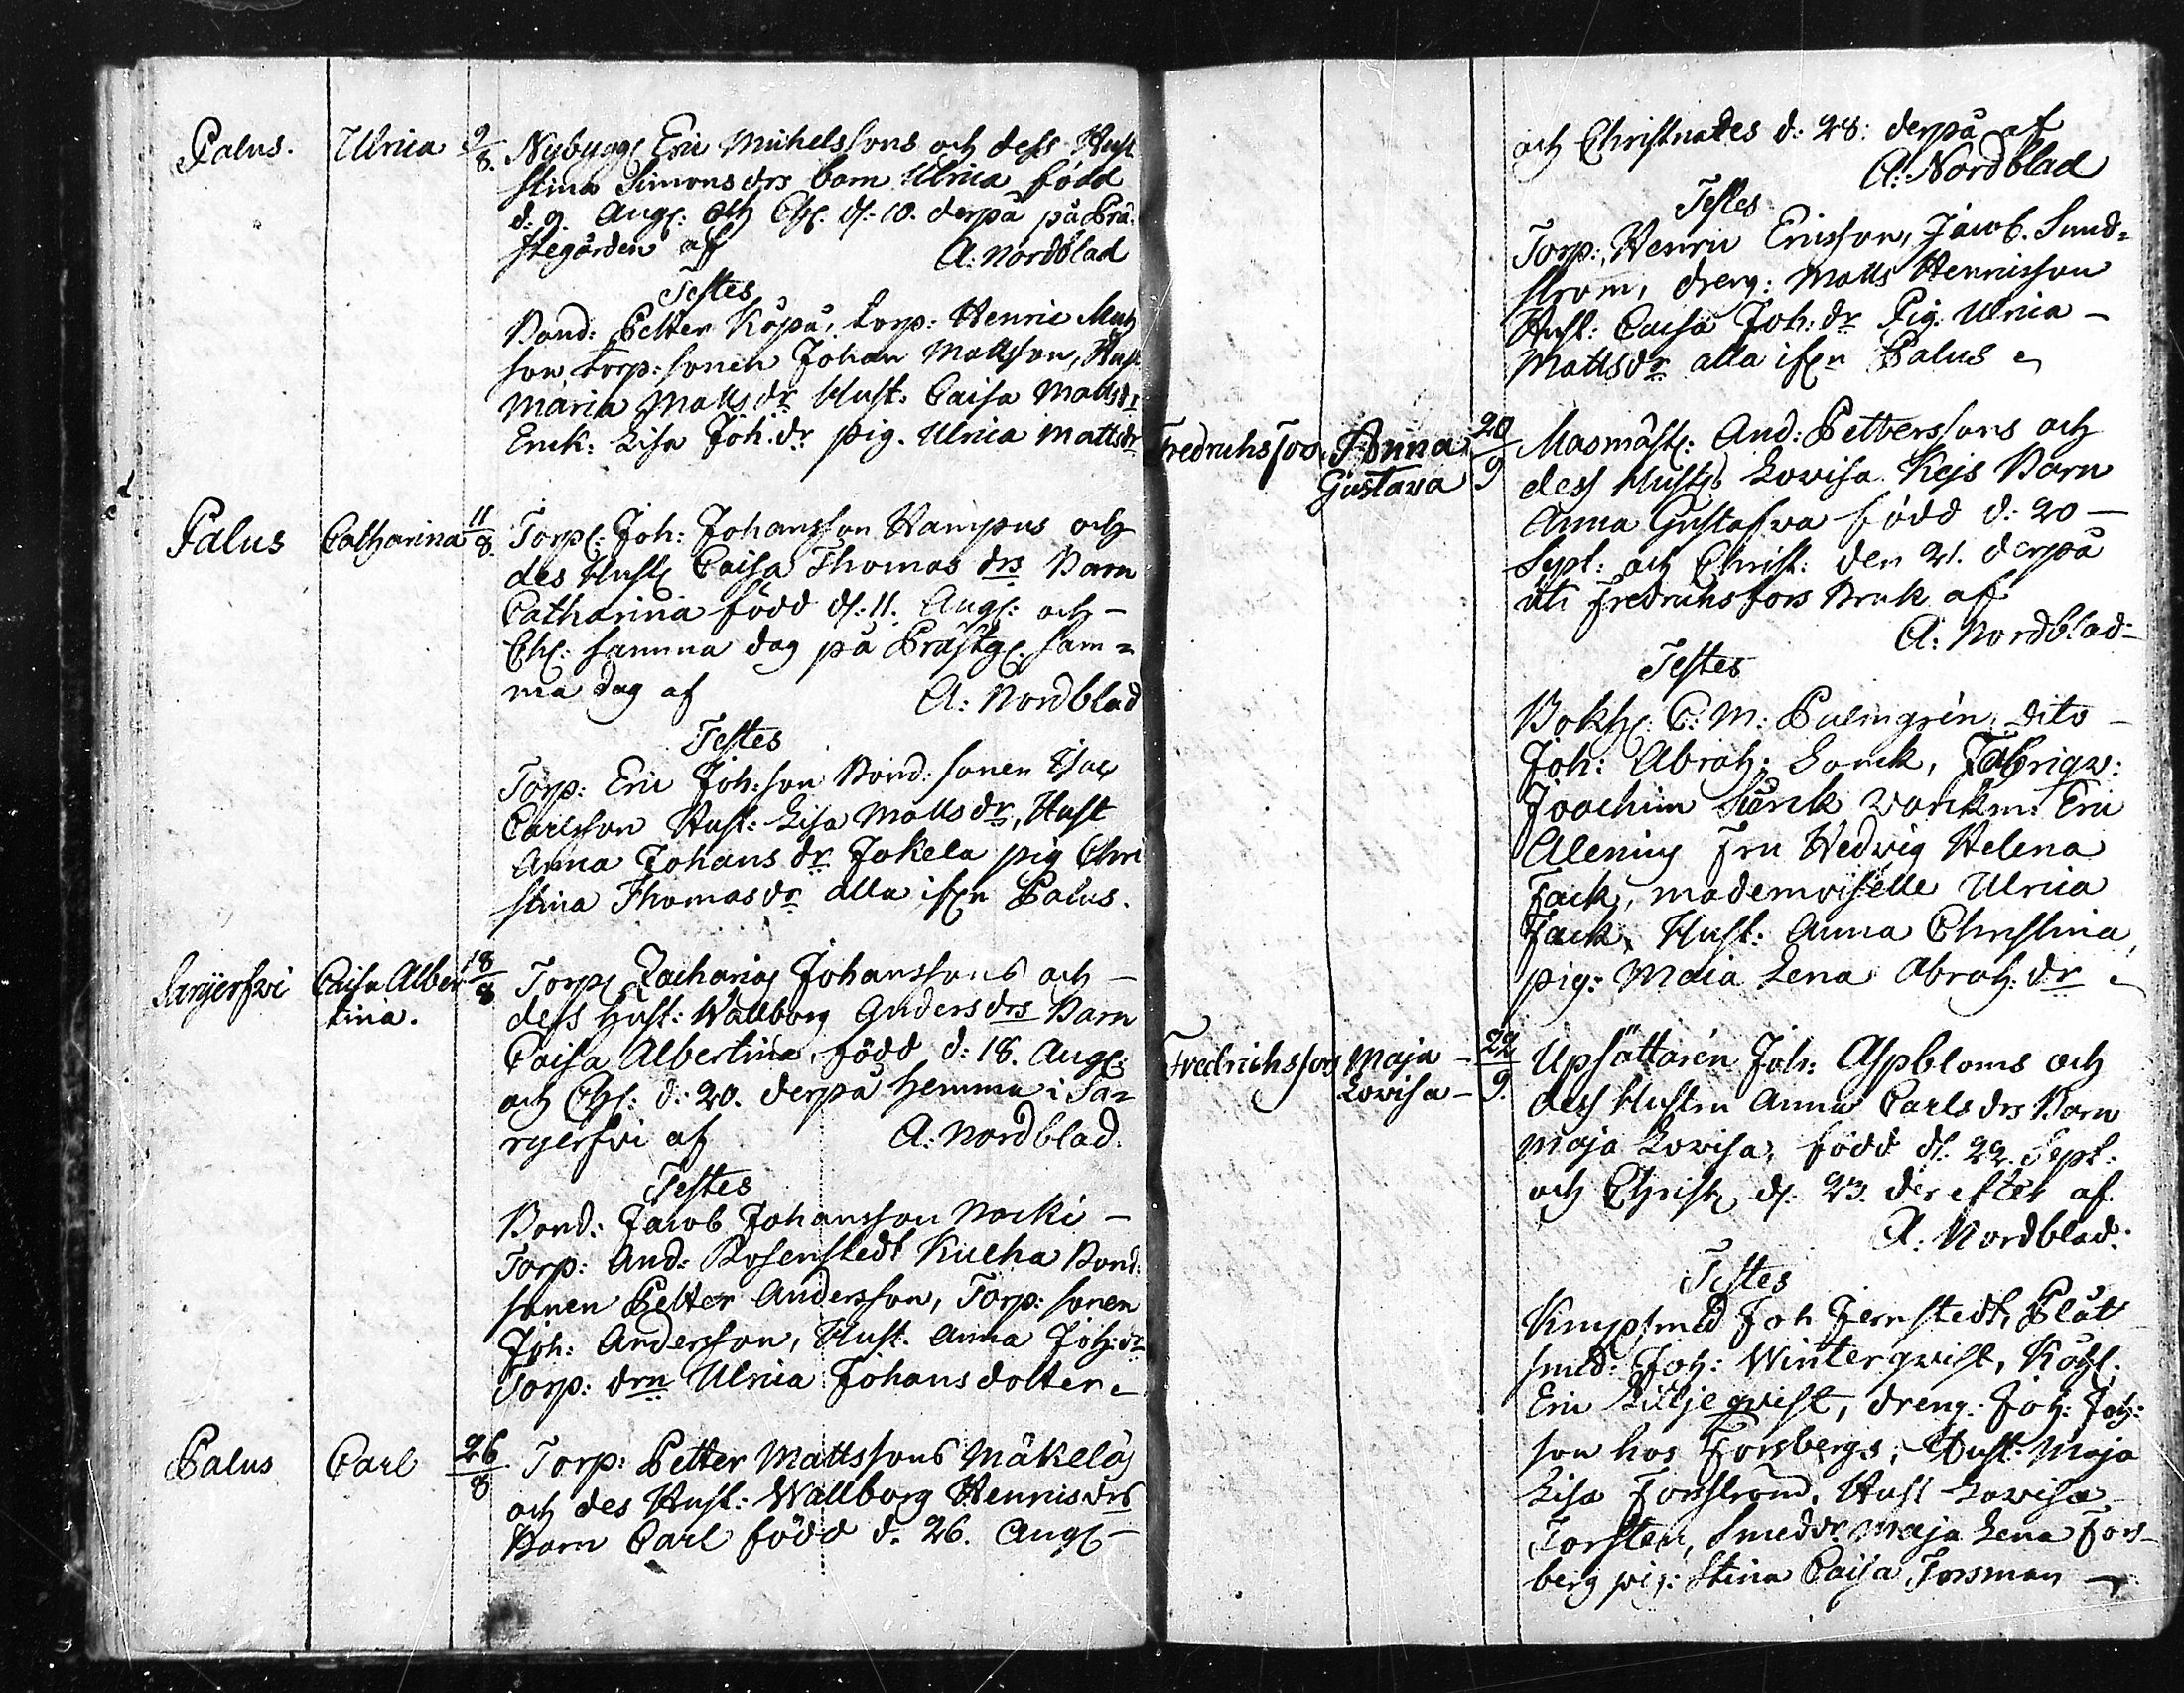 Palus. Ulrica 9/8. Nybygg: Eric Michelssons och dess Hust
Stina Simonsdrs barn Ulrica född
d: 9. Aug: och Ch: d: 10. derpå på Prä-
stegården af A: Nordblad
Testes
Bond: Petter Köpä, torp: Henric Matts
son torp: sonen Johan Mattsson, Hust
Maria Mattsdr Hust: Caisa Mattsdr
Enk: Lisa Joh:dr pig. Ulrica Mattsdr
Palus Catharina 11/8. Torp: Joh: Johansson Hampus och
des Hust: Caisa Thomas drs Barn
Catharina född d: 11. Aug: och -
Ch: samma dag på Prästg: sam=
ma dag af A: Nordblad
Testes
Torp: Eric Joh:son Bond: sonen Isac
Carlsson Hust: Lisa Mattsdr, Hust
Anna Johans dr Jokela pig Chri
stina Thomasdr alla ifrn Palus.
Sarijerfvi Caisa Alber 18/8 Torp: Zacharias Johanssons och -
tina. dess Hust: Wallborg Andersdrs Barn
Caisa Albertina, född d: 18. Aug:
och Ch: d: 20. derpå hemma i Sa=
rijerfvi af A: Nordblad.
Testes
Bond: Jacob Johansson Nocki -
Torp: And: Rosenstedt Kulha Bond:
sonen Petter Andersson, Torp: sonen
Joh: Andersson, Hust. Anna Joh:dr
Torp: drn Ulrica Johansdotter
Palus Carl 26/8 Torp: Petter Mattssons Mäkeläs
och des Hust: Wallborg Henricsdrs
Barn Carl född d. 26. Aug: -
och Christnades d: 28: derpå af
A: Nordblad
Testes
Torp: Henric Ericsson, Jacob. Sund=
ström, dreng: Matts Henricsson
Hust: Caisa Joh: dr Pig: Ulrica -
Mattsdr alla ifrn Palus
Fredrichsfors Anna 20/9 Masmäst: And: Petterssons och
Gustava dess Hust: Lovisa Kejs Barn
Anna Gustafva född d: 20 -
Sept: och Christ: den 21. derpå
uti Fredrichsfors Bruk af
A: Nordblad -
Testes
Bokh: C: M: Palmgrén, dito -
Joh: Abrah: Lonck, Fabriqw:
Joachim Turck workm: Eric
Alenius Fru Hedvig Helena
Fack, mademoiselle Ulrica
Fack, Hust: Anna Christina,
pig: Maia Lena Abrah: dr
Fredrichsfors Maja - 22/9. Upsättarén Joh: Aspbloms och
Lovisa - dess Hustru Anna Carls drs Barn
Maja Lovisa, född d: 22. Sept:
och Christ: d: 23. derefter af
A: Nordblad:
Testes
Knipsmed Joh Jernstedt, Plåt
smed: Joh: Winterqvist, Kohl:
Eric Liljeqvist, dreng: Joh: Joh:
son hos Forsbergs, Hust: Maja
Lisa Forsström, Hust Lovisa
Torsten, Smeddr Maja Lena Fors-
berg pig: Stina Caisa Forsman -